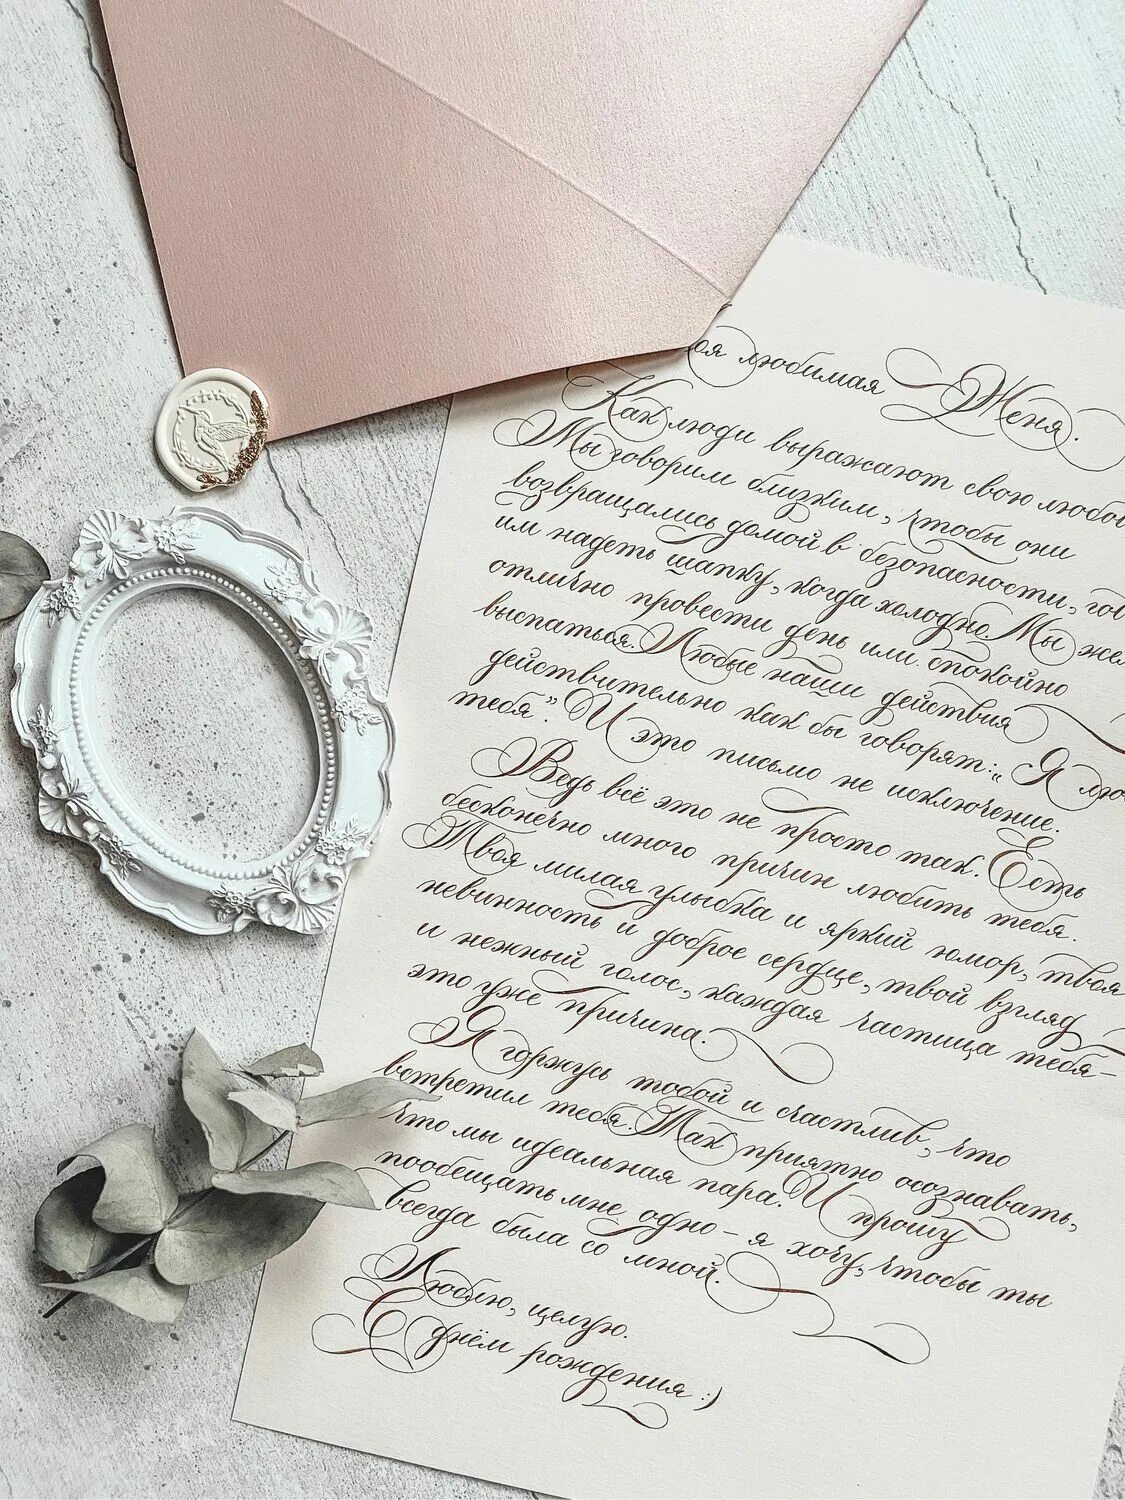 оя любимая Женя.
Как люди выражают свою любо
Мы говорим близким, чтобы они
возвращались домой в безопасности, гов
им надеть шапку, когда холодно. Мы жел
отлично провести день или спокойно
выспаться. Любые наши действия
действительно как бы говорят: „Я лю
тебя”. И это письмо не исключение.
Ведь всё это не просто так. Есть
бесконечно много причин любить тебя.
Твоя милая улыбка и яркий юмор, твоя
невинность и доброе сердце, твой взгляд
и нежный голос, каждая частица тебя –
это уже причина.
Я горжусь тобой и счастлив, что
встретил тебя. Так приятно осознавать,
что мы идеальная пара. И прошу
пообещать мне одно – я хочу, чтобы ты
всегда была со мной.
Люблю, целую.
С днём рождения :)